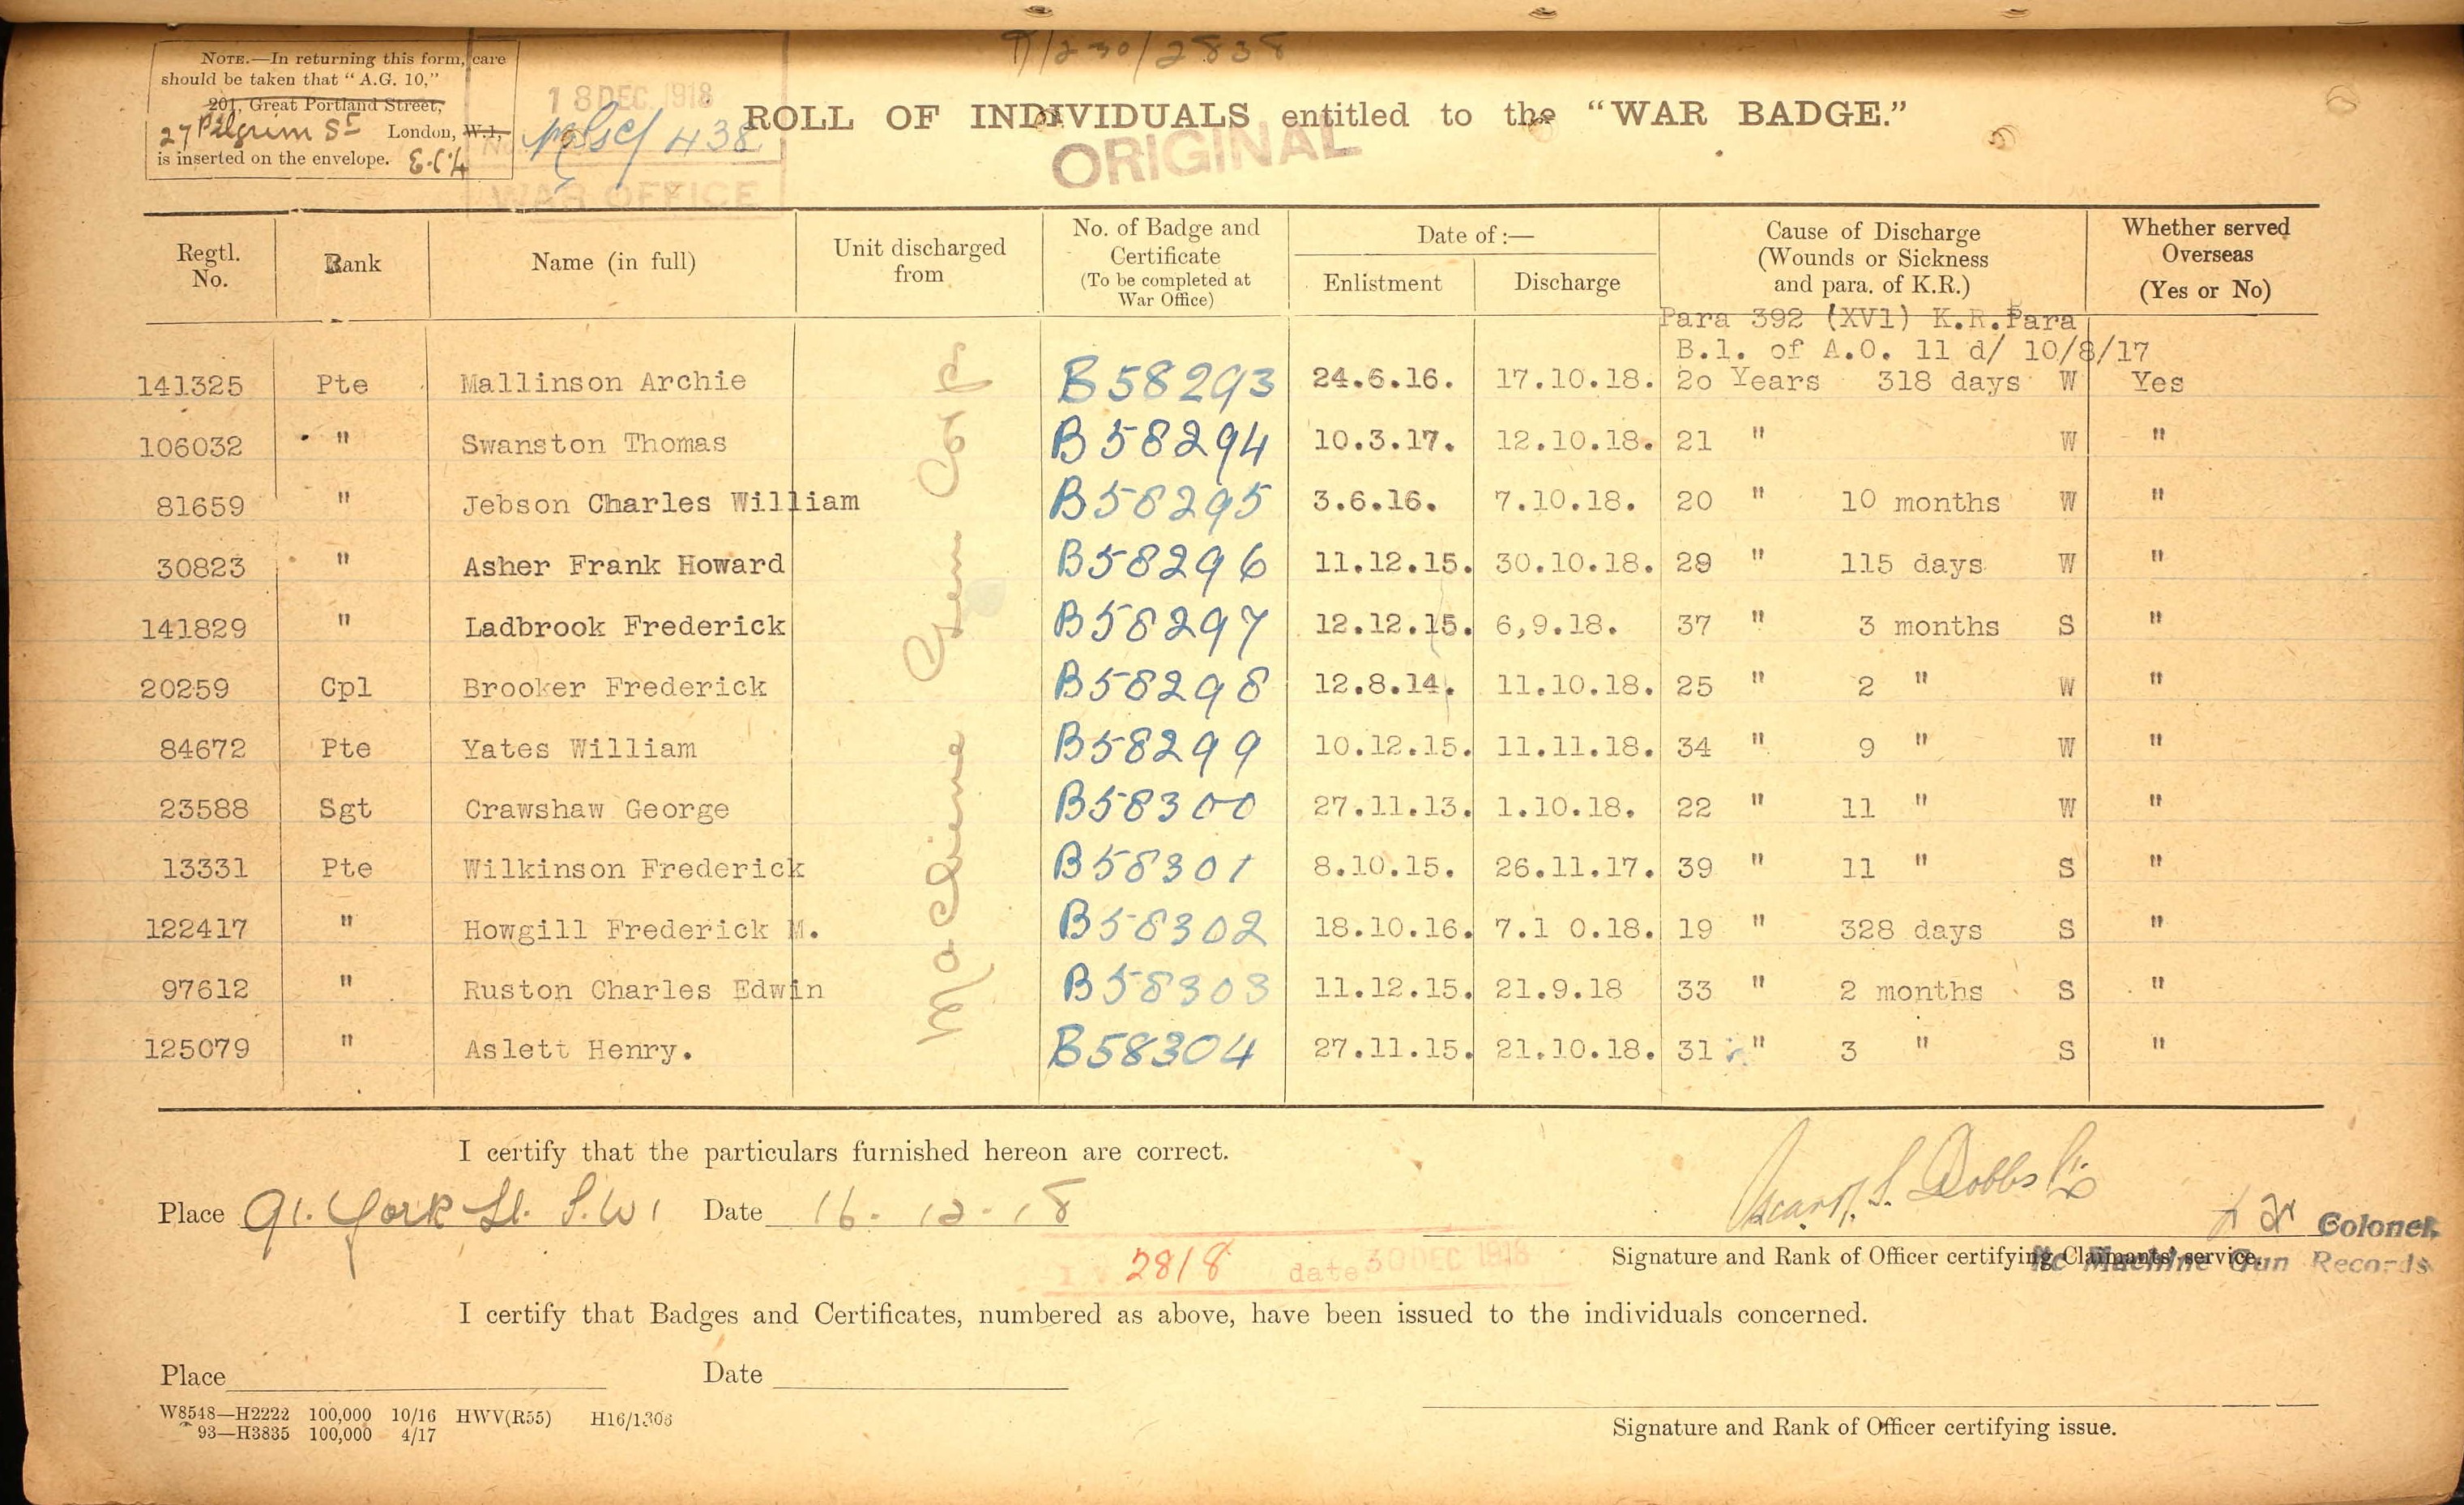 T/230/2838
NOTE.—In returning this form, care
should be taken that "A.G. 10,"
201, Great Portland Street,
27 Pilgrim St London, W.1,
is inserted on the envelope. E.C.4
18 DEC. 1918
438
WAR OFFICE
ROLL OF INDIVIDUALS entitled to the "WAR BADGE."
ORIGINAL
Regtl. No. Rank Name (in full) Unit discharged from No. of Badge and Certificate (To be completed at War Office) Date of:— Enlistment Discharge Cause of Discharge (Wounds or Sickness and para. of K.R.) Whether served Overseas (Yes or No)
Para 392 (XV1) K.R.Para
B.1. of A.O. 11 d/ 10/8/17
Machine Gun Corps
141325 Pte Mallinson Archie B58293 24.6.16. 17.10.18. 2o Years 318 days W Yes
106032 " Swanston Thomas B58294 10.3.17. 12.10.18. 21 " W "
81659 " Jebson Charles William B58295 3.6.16. 7.10.18. 20 " 10 months W "
30823 " Asher Frank Howard B58296 11.12.15. 30.10.18. 29 " 115 days W "
141829 " Ladbrook Frederick B58297 12.12.15. 6,9.18. 37 " 3 months S "
20259 Cpl Brooker Frederick B58298 12.8.14. 11.10.18. 25 " 2 " W "
84672 Pte Yates William B58299 10.12.15. 11.11.18. 34 " 9 " W "
23588 Sgt Crawshaw George B58300 27.11.13. 1.10.18. 22 " 11 " W "
13331 Pte Wilkinson Frederick B58301 8.10.15. 26.11.17. 39 " 11 " S "
122417 " Howgill Frederick M. B58302 18.10.16. 7.1 0.18. 19 " 328 days S "
97612 " Ruston Charles Edwin B58303 11.12.15. 21.9.18 33 " 2 months S "
125079 " Aslett Henry. B58304 27.11.15. 21.10.18. 31 " 3 " S "
I certify that the particulars furnished hereon are correct.
Place 91. York St. S.W1 Date 16.12.18
Dobbs
for Colonel
Signature and Rank of Officer certifying Claimants' service.
i/c Machine Gun Records
2818 date 30 DEC 1918
I certify that Badges and Certificates, numbered as above, have been issued to the individuals concerned.
Place Date
W8548—H2222 100,000 10/16 HWV(R55) H16/1306
93—H3835 100,000 4/17
Signature and Rank of Officer certifying issue.